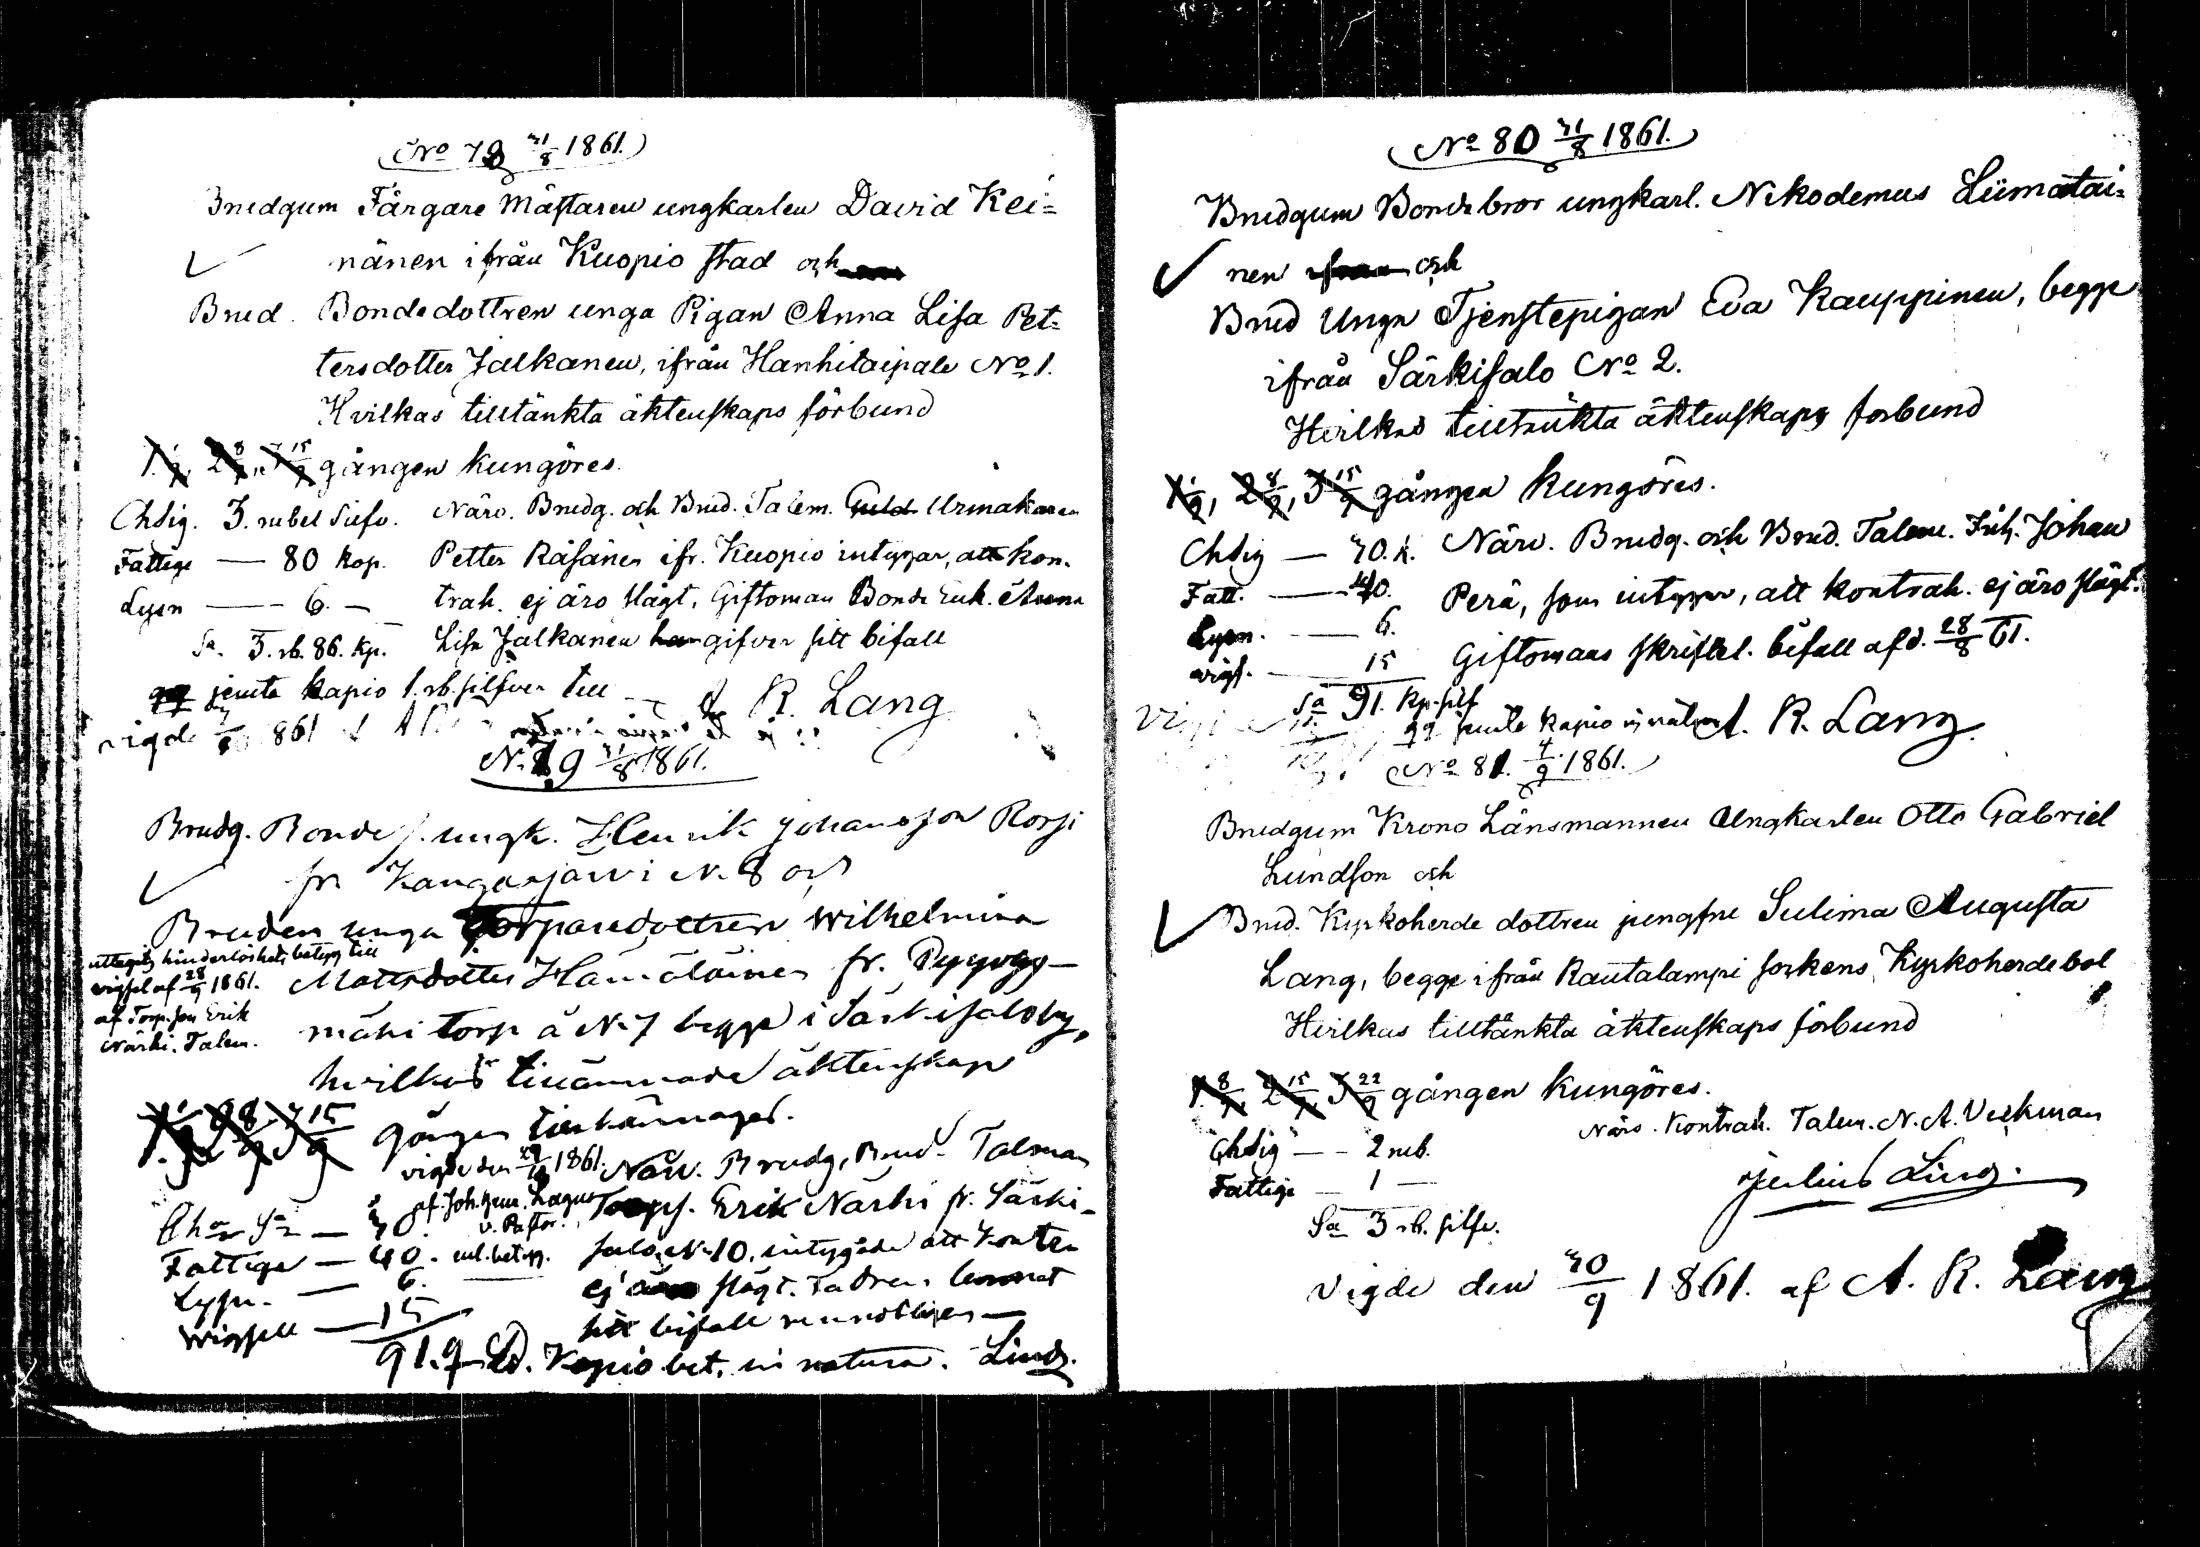 No 78 31/8 1861.
Brudgum Färgare Mästaren ungkarlen David Kei=
nänen ifrån Kuopio stad och
Brud. Bondedottren unga Pigan Anna Lisa Pet=
tersdotter Jalkanen, ifrån Hanhitaipale No 1.
Hvilkas tilltänkta äktenskaps förbund
1 1/9, 2 8/9, 3 15/9 gången kungöres.
Chsig. 3. rubel Silfv. Närv. Brudg. och Brud. Talem. Urmakaren
Fattige — 80 kop. Petter Räsänen ifr. Kuopio intygar, att kon-
Lysn — 6. — trah. ej äro slägt. Giftoman Bonde Enk. Anna
Sa. 3. rb. 86. kp. Lisa Jalkanen gifver sitt bifall
qq jemte kapio 1. rb. silfver till A. R. Lang
vigde 1861
N. 79 31/8 1861.
Brudg. Bonde s. ungk. Henrik Johansson Rossi
fr. Kangasjärvi N. 8 och
Bruden unga Torparedottren Wilhelmina
uttagit hinderlöshets betyg till
vigsel af 28/9 1861.
af Torp. son Erik
Närhi. Talem.
Mattsdotter Hämäläinen fr. Pyyvy-
mäki torp å N. 7 begge i Särkisalo by,
hvilkas tillämnade äktenskap
1. 1/9 2 8/9 3 15/9 gången tillkännages.
vigde den 29/9 1861. Närv. Brudg, Brud. Talman
af Joh. Lagus
v. Pastor. Torps. Erik Närhi fr. Särki-
Fattige — 40. enl. betyg. salo N. 10, intygade att kontr.
Lysn. — 6. ej äro slägt. Fadren lemnat
Wigsell — 15 sitt bifall munteligen —
91. q Kapio bet. in natura. Lind.
No 80 31/8 1861.
Brudgum Bondebror ungkarl. Nikodemus Liimatai=
nen och
Brud Unga Tjenstepigan Eva Kauppinen, begge
ifrån Särkisalo No 2.
Hvilkas tilltänkta äktenskaps förbund
1 1/9, 2 8/9, 3 15/9 gången kungöres.
Chsig — 30. k. Närv. Brudg. och Brud. Talem. Inh. Johan
Fatt. — 40. Perä, som intygar, att kontrah. ej äro slägt.
Lysn. — 6. Giftomans skriftel. bifall af d. 28/8 61.
vigs. — 15
Sa 91. kp. silf
qq jemte kapio in natura A. R. Lang
No 81. 4/9 1861.
Brudgum Krono Länsmannen Ungkarlen Otto Gabriel
Lundson och
Brud. Kyrkoherde dottren jungfru Sulima Augusta
Lang, begge ifrån Rautalampi sockens Kyrkoherdebol
Hvilkas tilltänkta äktenskaps förbund
1 8/9, 2 15/9 3 22/9 gången kungöres.
Chsig — 2 rub. Närv. Kontrah. Talem. N. A. Veckman
Fattige — 1 — Julius Lind.
Sa 3 rb. silfv.
Vigde den 30/9 1861. af A. R. Lang